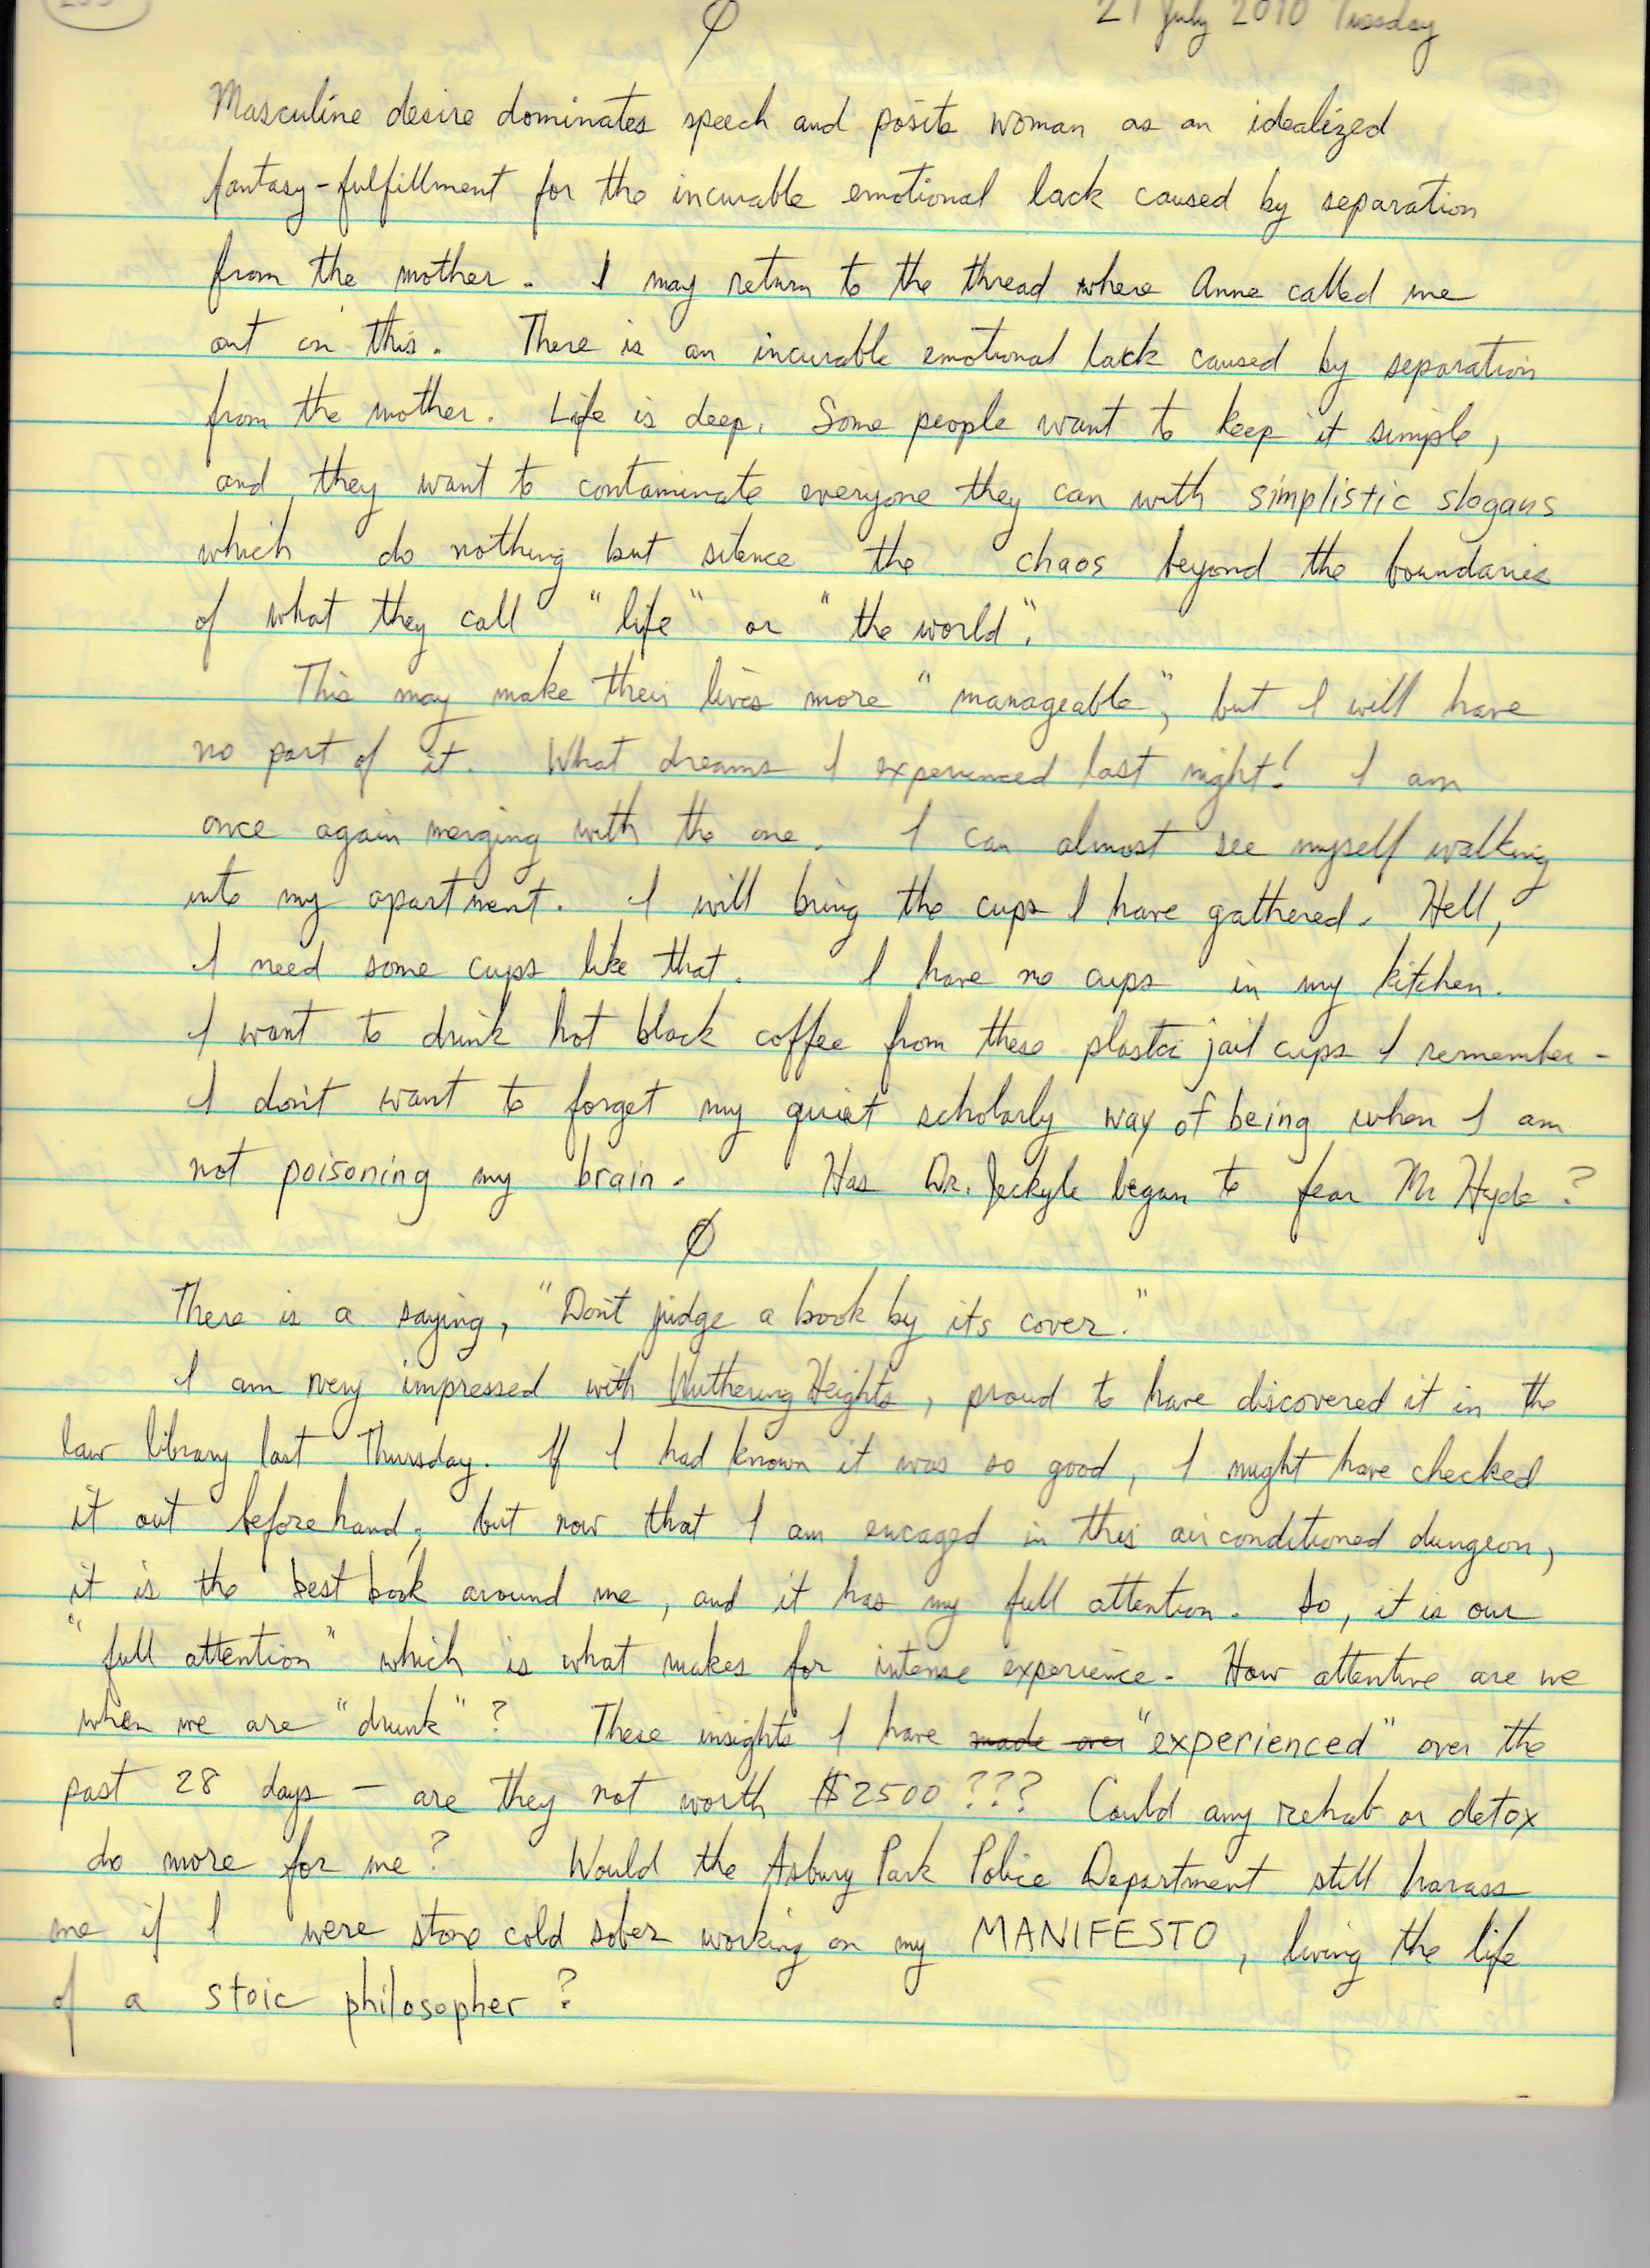 21 July 2010 Tuesday
Ø
Masculine desire dominates speech and posits woman as an idealized
fantasy-fulfillment for the incurable emotional lack caused by separation
from the mother. I may return to the thread where Anne called me
out on this. There is an incurable emotional lack caused by separation
from the mother. Life is deep. Some people want to keep it simple,
and they want to contaminate everyone they can with simplistic slogans
which do nothing but silence the chaos beyond the boundaries
of what they call "life" or "the world".
This may make their lives more "manageable", but I will have
no part of it. What dreams I experienced last night! I am
once again merging with the one. I can almost see myself walking
into my apartment. I will bring the cups I have gathered. Hell,
I need some cups like that. I have no cups in my kitchen.
I want to drink hot black coffee from these plastic jail cups I remember -
I don't want to forget my quiet scholarly way of being when I am
not poisoning my brain. Has Dr. Jeckyle began to fear Mr Hyde?
Ø
There is a saying, "Don't judge a book by its cover."
I am very impressed with Wuthering Heights, proud to have discovered it in the
law library last Thursday. If I had known it was so good, I might have checked
it out beforehand; but now that I am encaged in this airconditioned dungeon,
it is the best book around me, and it has my full attention. So, it is our
"full attention" which is what makes for intense experience. How attentive are we
when we are "drunk"? These insights I have made over "experienced" over the
past 28 days - are they not worth $2500??? Could any rehab or detox
do more for me? Would the Asbury Park Police Department still harass
me if I were stone cold sober working on my MANIFESTO, living the life
of a stoic philosopher?